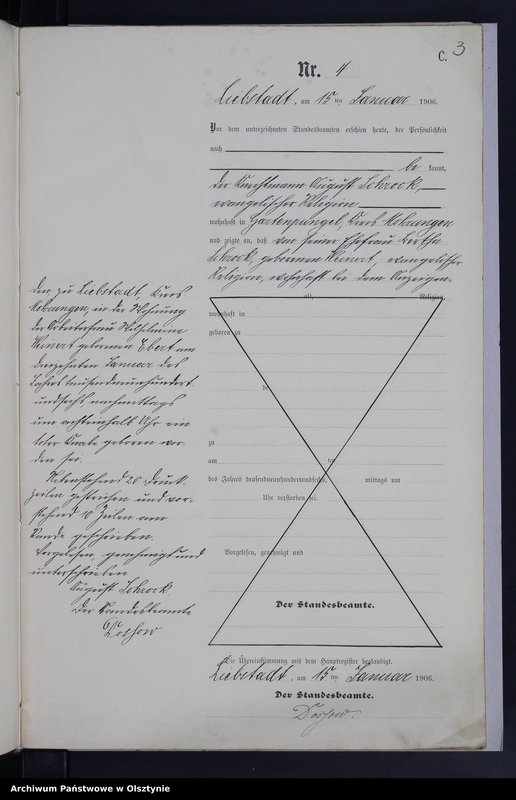 C. 3
Nr. 4
Liebstadt, am 15ten Januar 1906.
Vor dem unterzeichneten Standesbeamten erschien heute, der Persönlichkeit
nach
be kannt,
der August Schrock,
evangelischer Religion
wohnhaft in Hartenpungel, Kreis Mohrungen
und zeigte an, daß von seiner Ehefrau Bertha
Schrock, geborenen Weinert, evangelischer
Religion, wohnhaft bei dem Anzeigen-
alt, Religion,
wohnhaft in
geboren zu
de
zu
am ten
des Jahres tausendneunhundertundsechs, mittags um
Uhr verstorben sei.
Vorgelesen, genehmigt und
Der Standesbeamte.
den zu Liebstadt, Kreis
Mohrungen, in der Wohnung
der Arbeiterfrau Wilhelmine
Weinert geborenen Ebert am
dreizehnten Januar des
Jahres tausendneunhundert
undsechs, nachmittags
um achteinhalb Uhr ein
toter Knabe geboren wor-
den sei.
Nebenstehend 20 Druck-
zeilen gestrichen und vor-
stehend 10 Zeilen am
Rande geschrieben.
Vorgelesen, genehmigt und
unterschrieben
August Schrock
Der Standesbeamte
Die Übereinstimmung mit dem Hauptregister beglaubigt.
Liebstadt, am 15ten Januar 1906.
Der Standesbeamte.
Archiwum Państwowe w Olsztynie